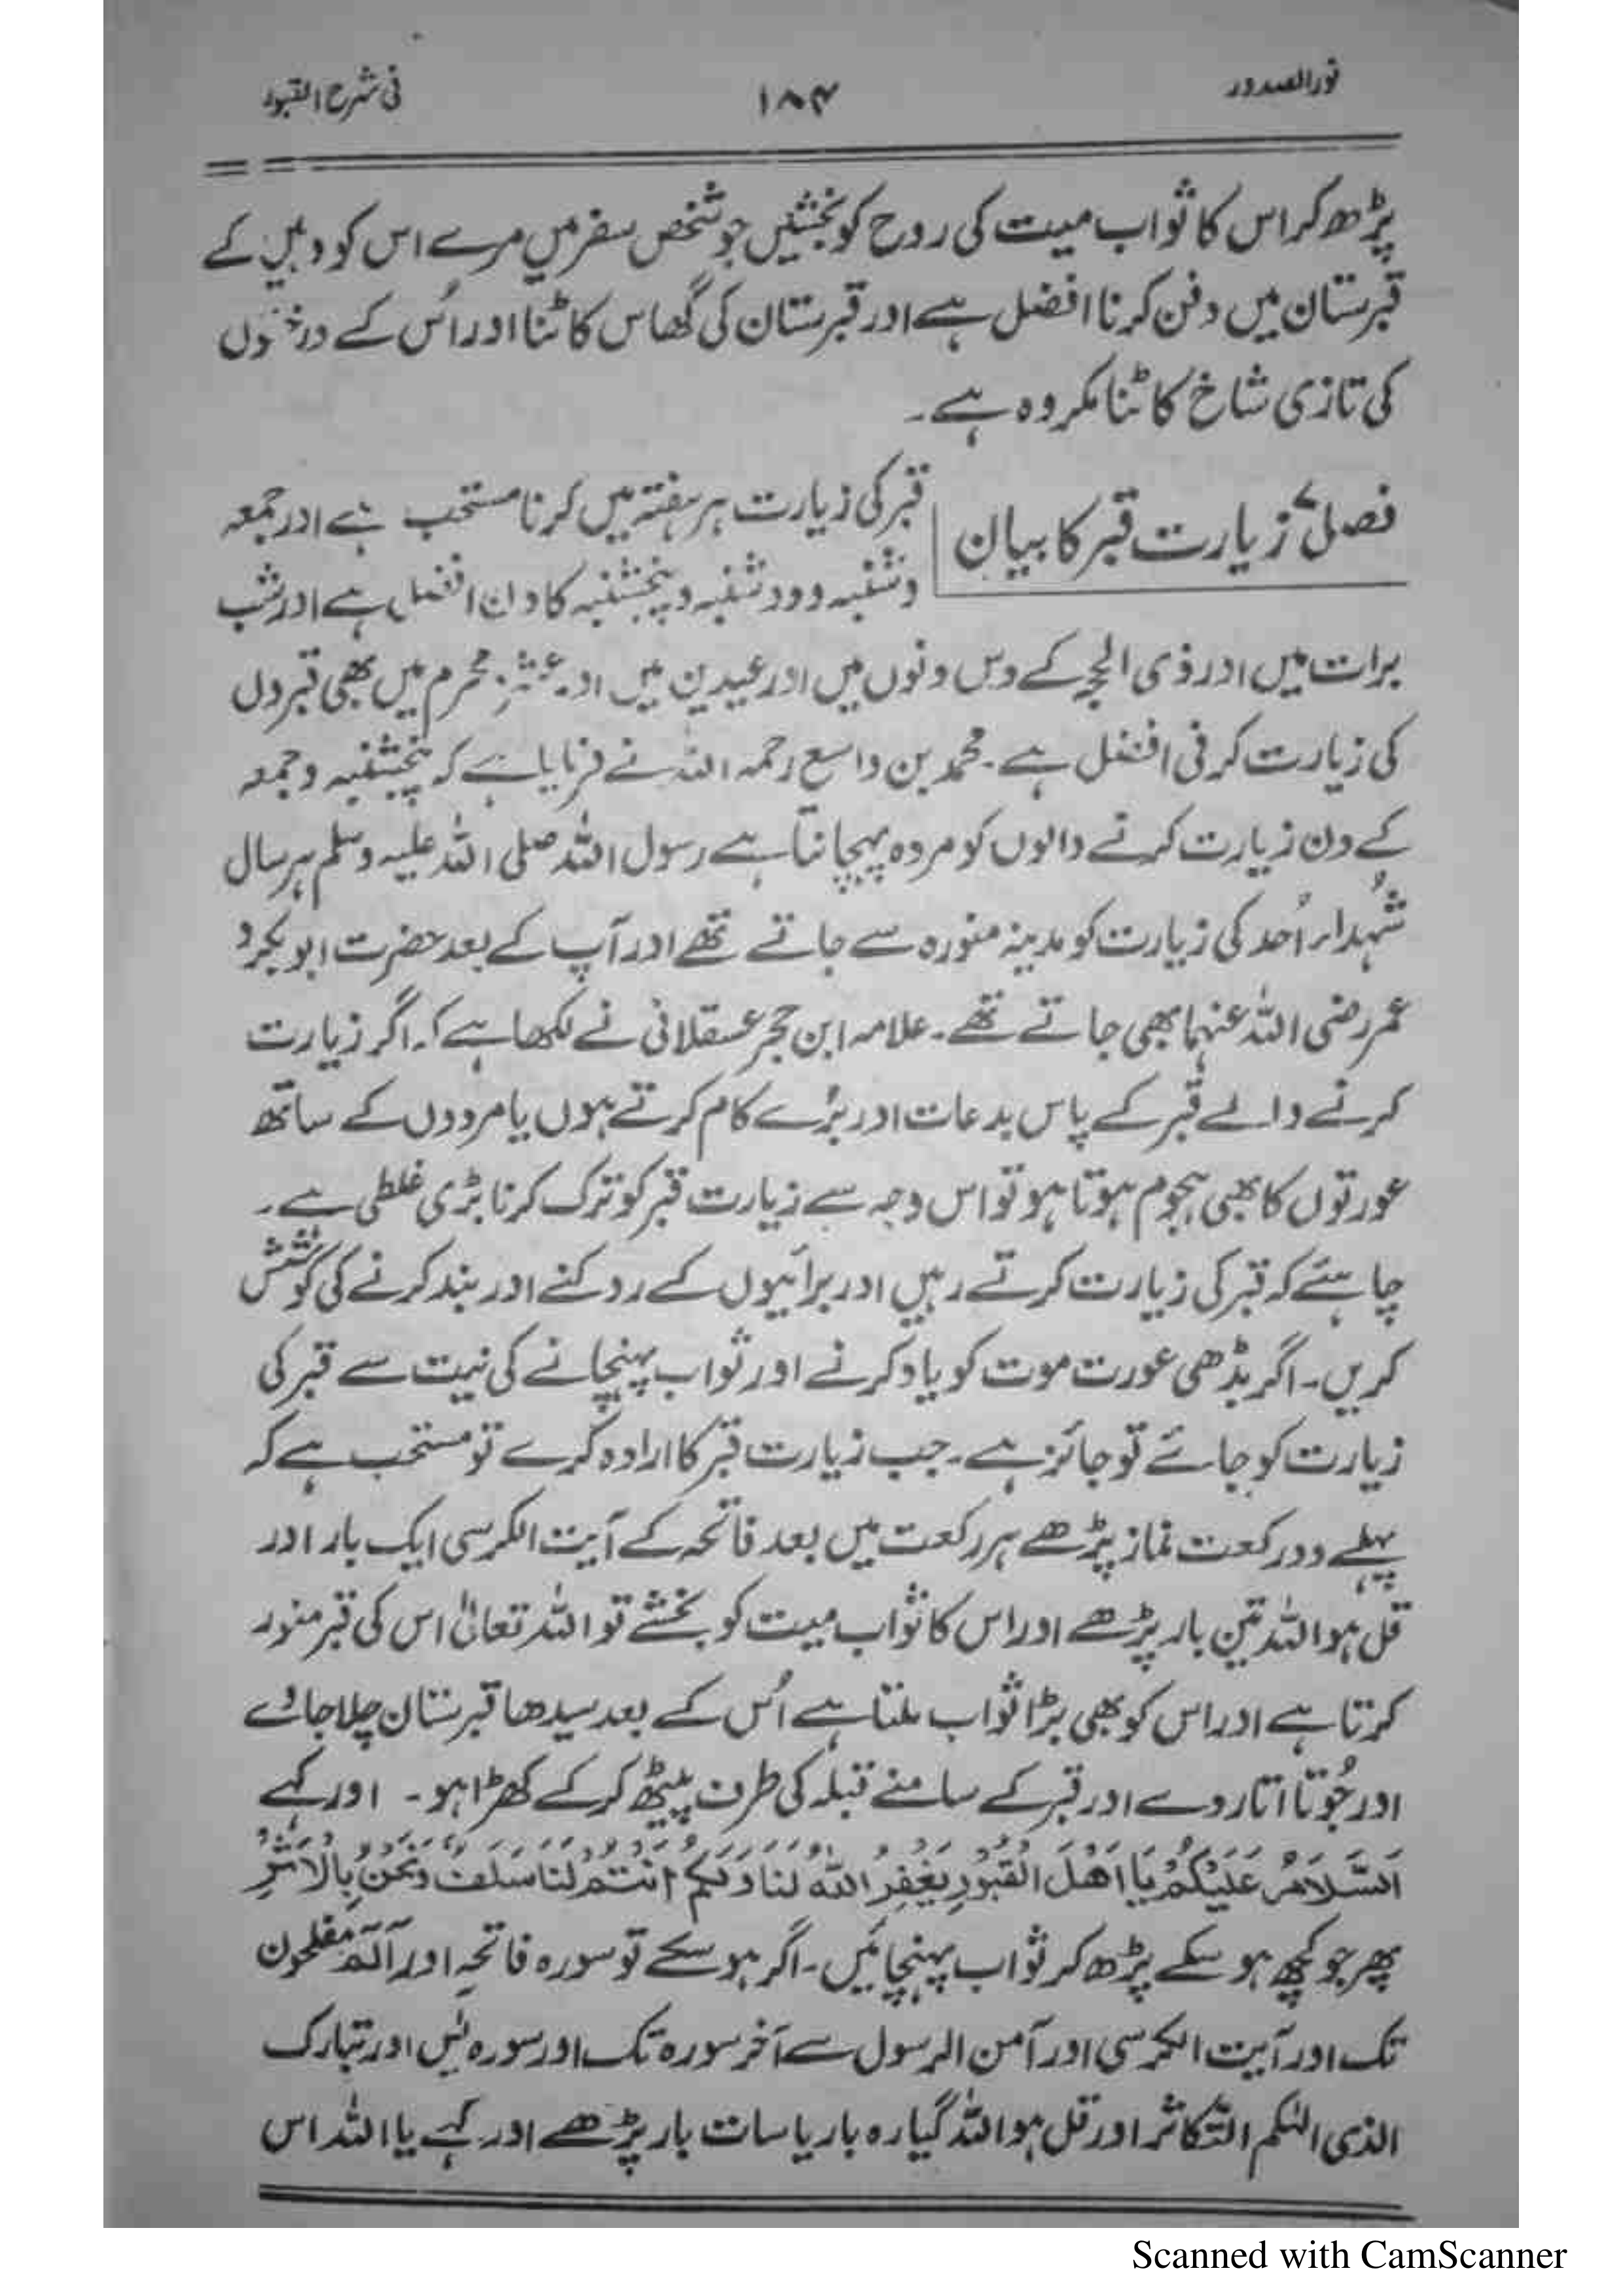 نور الصدور
۱۸۴
فی شرح القبور
پڑھ کر اس کا ثواب میت کی روح کو بخشیں جو شخص سفر میں مرے اس کو وہیں کے
قبرستان میں دفن کرنا افضل ہے اور قبرستان کی گھاس کاٹنا اور اُس کے درختوں
کی تازی شاخ کاٹنا مکروہ ہے۔
فصل زیارت قبر کا بیان
قبر کی زیارت ہر ہفتہ میں کرنا مستحب ہے اور جمعہ
و شنبہ و دو شنبہ و پنجشنبہ کا دن افضل ہے اور شب
برات میں اور ذی الحجہ کے دس دنوں میں اور عیدین میں اور عشرۂ محرم میں بھی قبروں
کی زیارت کرنی افضل ہے۔ محمد بن واسع رحمہ اللہ نے فرمایا ہے کہ پنجشنبہ و جمعہ
کے دن زیارت کرنے والوں کو مردہ پہچانتا ہے رسول اللہ صلی اللہ علیہ وسلم ہر سال
شہداء اُحد کی زیارت کو مدینہ منورہ سے جاتے تھے اور آپ کے بعد حضرت ابو بکر و
عمر رضی اللہ عنہما بھی جاتے تھے۔ علامہ ابن حجر عسقلانی نے لکھا ہے کہ اگر زیارت
کرنے والے قبر کے پاس بدعات اور بُرے کام کرتے ہوں یا مردوں کے ساتھ
عورتوں کا بھی ہجوم ہوتا ہو تو اس وجہ سے زیارت قبر کو ترک کرنا بڑی غلطی ہے۔
چاہئے کہ قبر کی زیارت کرتے رہیں اور برائیوں کے روکنے اور بند کرنے کی کوشش
کریں۔ اگر بڈھی عورت موت کو یاد کرنے اور ثواب پہنچانے کی نیت سے قبر کی
زیارت کو جائے تو جائز ہے۔ جب زیارت قبر کا ارادہ کرے تو مستحب ہے کہ
پہلے دو رکعت نماز پڑھے ہر رکعت میں بعد فاتحہ کے آیت الکرسی ایک بار اور
قل ہو اللہ تین بار پڑھے اور اس کا ثواب میت کو بخشے تو اللہ تعالیٰ اس کی قبر منور
کرتا ہے اور اس کو بھی بڑا ثواب ملتا ہے اُس کے بعد سیدھا قبرستان چلا جاوے
اور جُوتا اتار دے اور قبر کے سامنے قبلہ کی طرف پیٹھ کر کے کھڑا ہو۔ اور کہے
اَلسَّلَامُ عَلَيْكُمْ يَا اَهْلَ الْقُبُوْرِ يَغْفِرُ اللّٰهُ لَنَا وَلَكُمْ اَنْتُمْ لَنَا سَلَفٌ وَنَحْنُ بِالْاَثَرِ
پھر جو کچھ ہو سکے پڑھ کر ثواب پہنچائیں۔ اگر ہو سکے تو سورہ فاتحہ اور آلٓمٓ مفلحون
تک اور آیت الکرسی اور آمن الرسول سے آخر سورہ تک اور سورہ یٰس اور تبارک
الذی الہٰکم التکاثر اور قل ہو اللہ گیارہ بار یا سات بار پڑھے اور کہے یا اللہ اس
Scanned with CamScanner